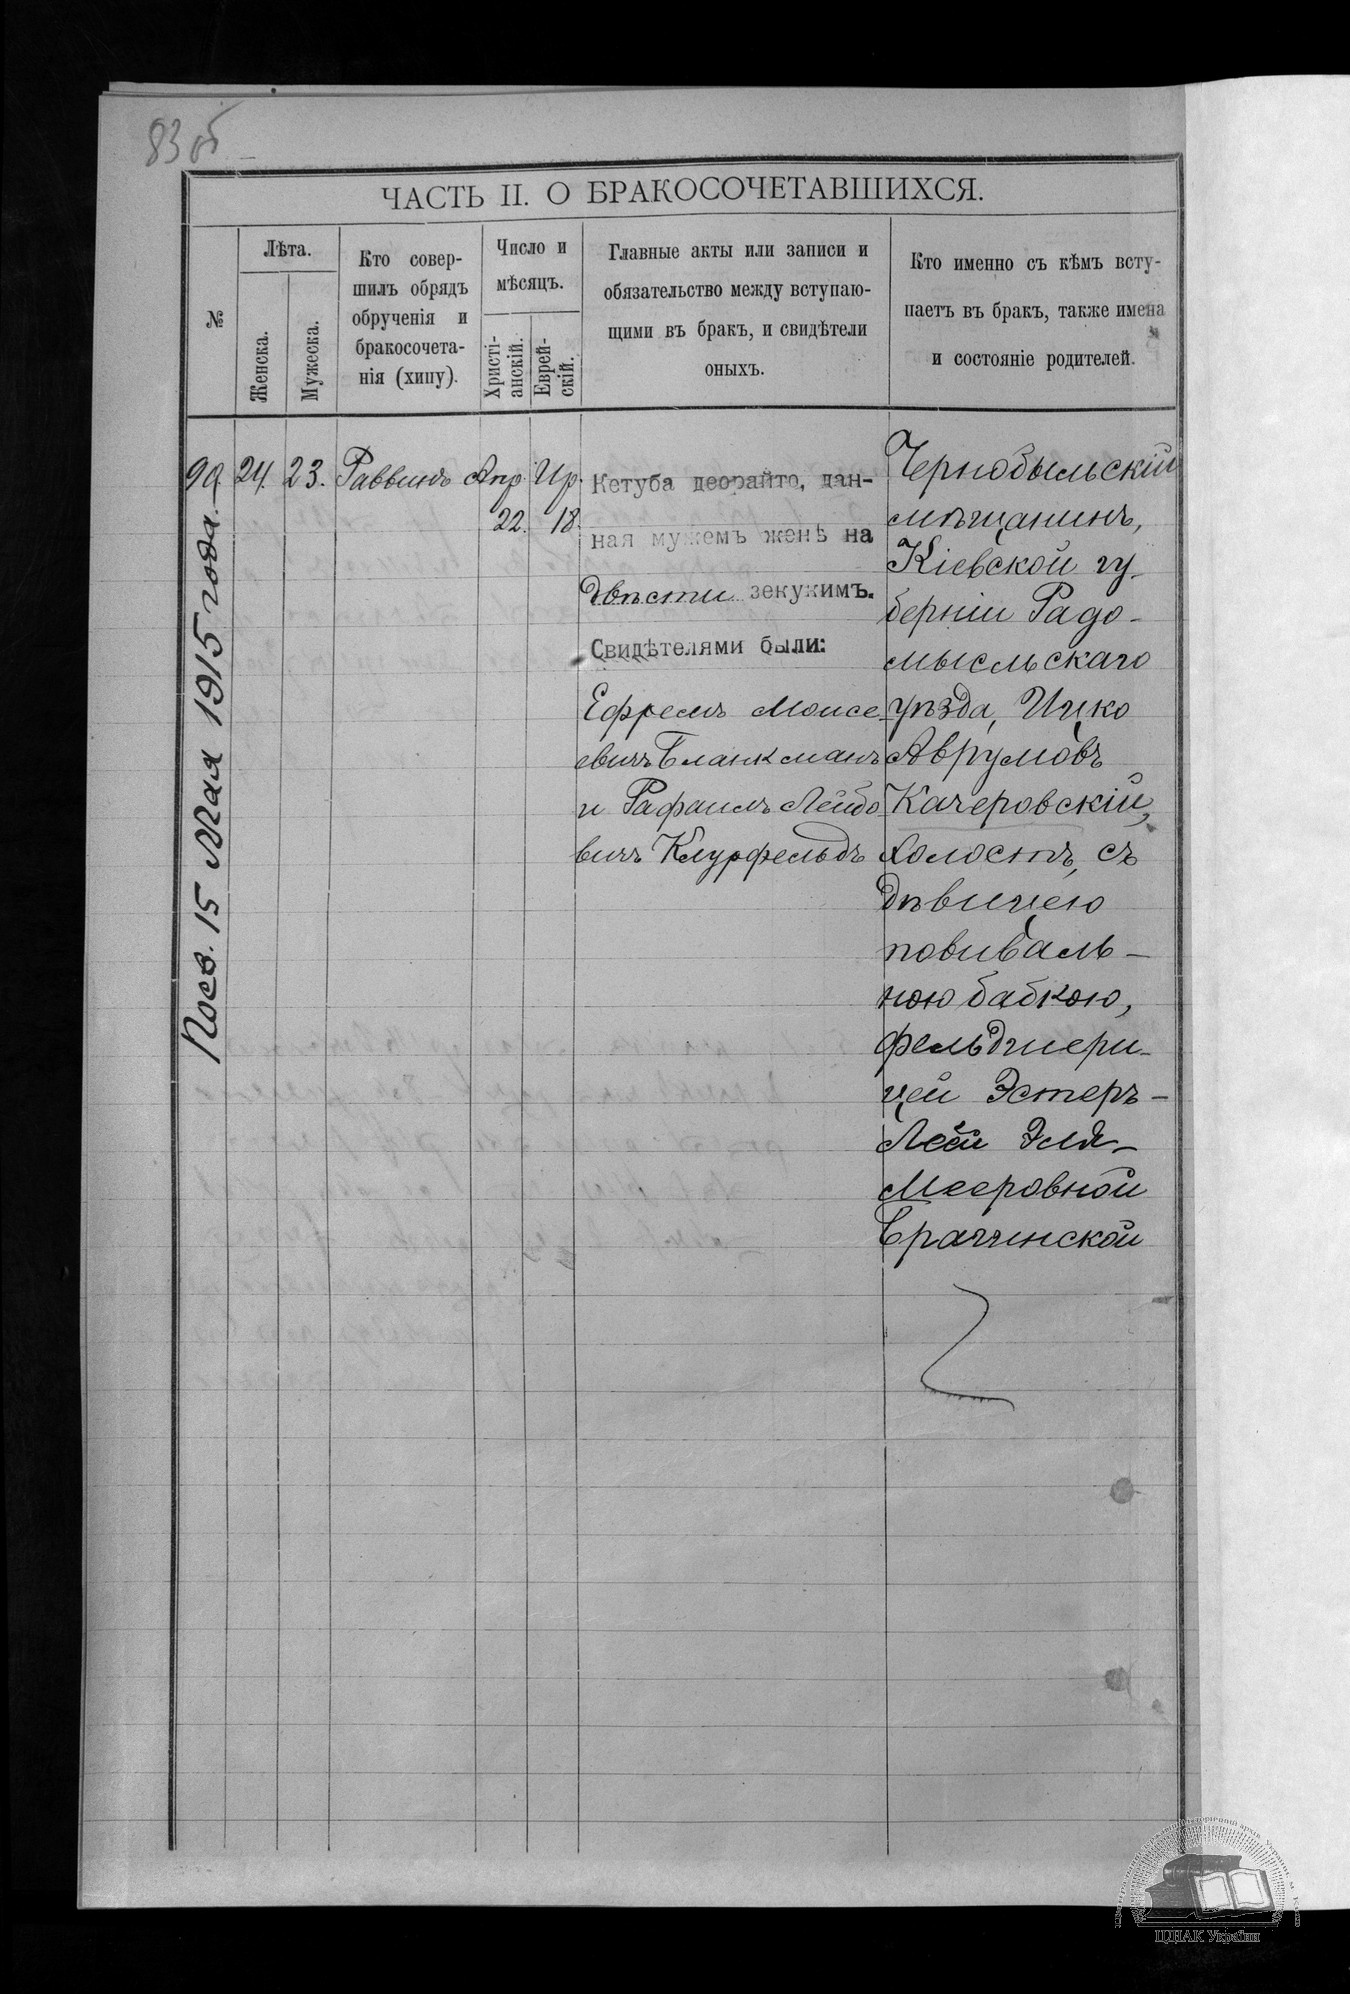 83 об
ЧАСТЬ II. О БРАКОСОЧЕТАВШИХСЯ.
№
Лѣта.
Женска.
Мужеска.
Кто совер-
шилъ обрядъ
обрученія и
бракосочета-
нія (хипу).
Число и
мѣсяцъ.
Христі-
анскій.
Еврей-
скій.
Главные акты или записи и
обязательство между вступаю-
щими въ бракъ, и свидѣтели
оныхъ.
Кто именно съ кѣмъ всту-
паетъ въ бракъ, также имена
и состояніе родителей.
90.
24.
23.
Раввинъ
Апр.
22.
Ир.
18.
Кетуба деорайто, дан-
ная мужемъ женѣ на
двѣсти зекукимъ.
Свидѣтелями были:
Ефремъ Моисе
евичъ Бланкманъ
и Рафаилъ Лейбо
вичъ Клурфельдъ
Чернобыльскій
мѣщанинъ,
Кіевской гу-
берніи Радо-
мысльскаго
уѣзда, Ицко
Аврумовъ
Качеровскій,
холостъ, съ
дѣвицею
повиваль-
ною бабкою,
фельдшери-
цей Эстеръ-
Леей Эля-
Мееровной
Брагинской
Посв. 15 Мая 1915 года.
ЦДІАК України